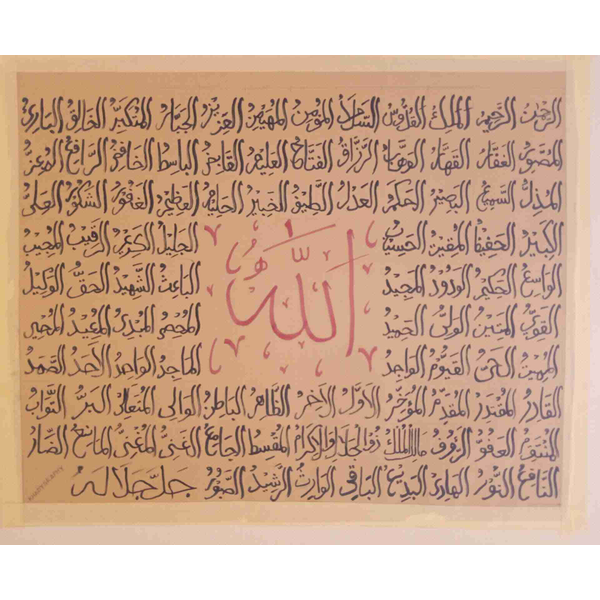 الرحمن الرحيم الملك القدوس السلام المؤمن المهيمن العزيز الجبار المتكبر الخالق البارئ
المصور الغفار القهار الوهاب الرزاق الفتاح العليم القابض الباسط الخافض الرافع المعز
المذل السميع البصير الحكم العدل اللطيف الخبير الحليم العظيم الغفور الشكور العلى
الكبير الحفيظ المقيت الحسيب الجليل الكريم الرقيب المجيب
الواسع الحكيم الودود المجيد الباعث الشهيد الحق الوكيل
الله
القوى المتين الولى الحميد المحصى المبدئ المعيد المحيى
المميت الحى القيوم الواجد الماجد الواحد الأحد الصمد
القادر المقتدر المقدم المؤخر الأول الآخر الظاهر الباطن الوالى المتعال البر التواب
المنتقم العفو الرؤف مالك الملك ذو الجلال والإكرام المقسط الجامع الغنى المغنى المانع الضار
النافع النور الهادى البديع الباقى الوارث الرشيد الصبور جل جلاله